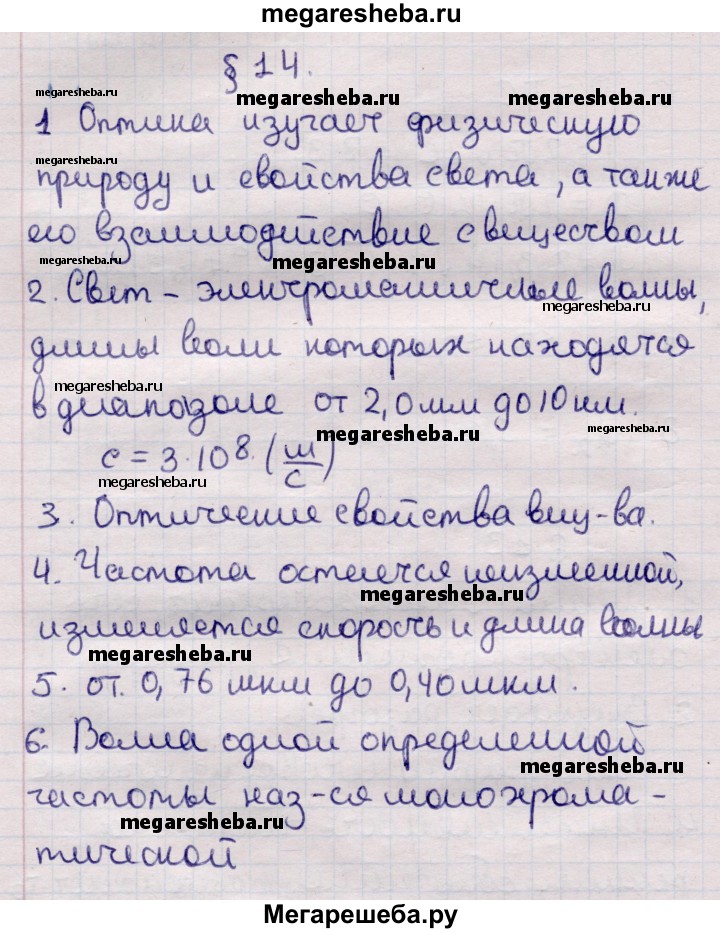 megaresheba.ru
§ 14.
megaresheba.ru
megaresheba.ru megaresheba.ru
1 Оптика изучает физическую
megaresheba.ru
природу и свойства света, а также
его взаимодействие с веществом
megaresheba.ru megaresheba.ru
2. Свет - электромагнитные волны,
megaresheba.ru
длины волн которых находятся
megaresheba.ru
в диапазоне от 2,0 мм до 10 нм.
megaresheba.ru megaresheba.ru
c = 3·10⁸ (м/с)
megaresheba.ru
3. Оптические свойства вещ-ва.
4. Частота остается неизменной,
megaresheba.ru
изменяется скорость и длина волны
megaresheba.ru
5. от 0,76 мкм до 0,40 мкм.
6. Волна одной определенной
megaresheba.ru
частоты наз-ся монохрома-
megaresheba.ru
тической
Мегарешеба.ру